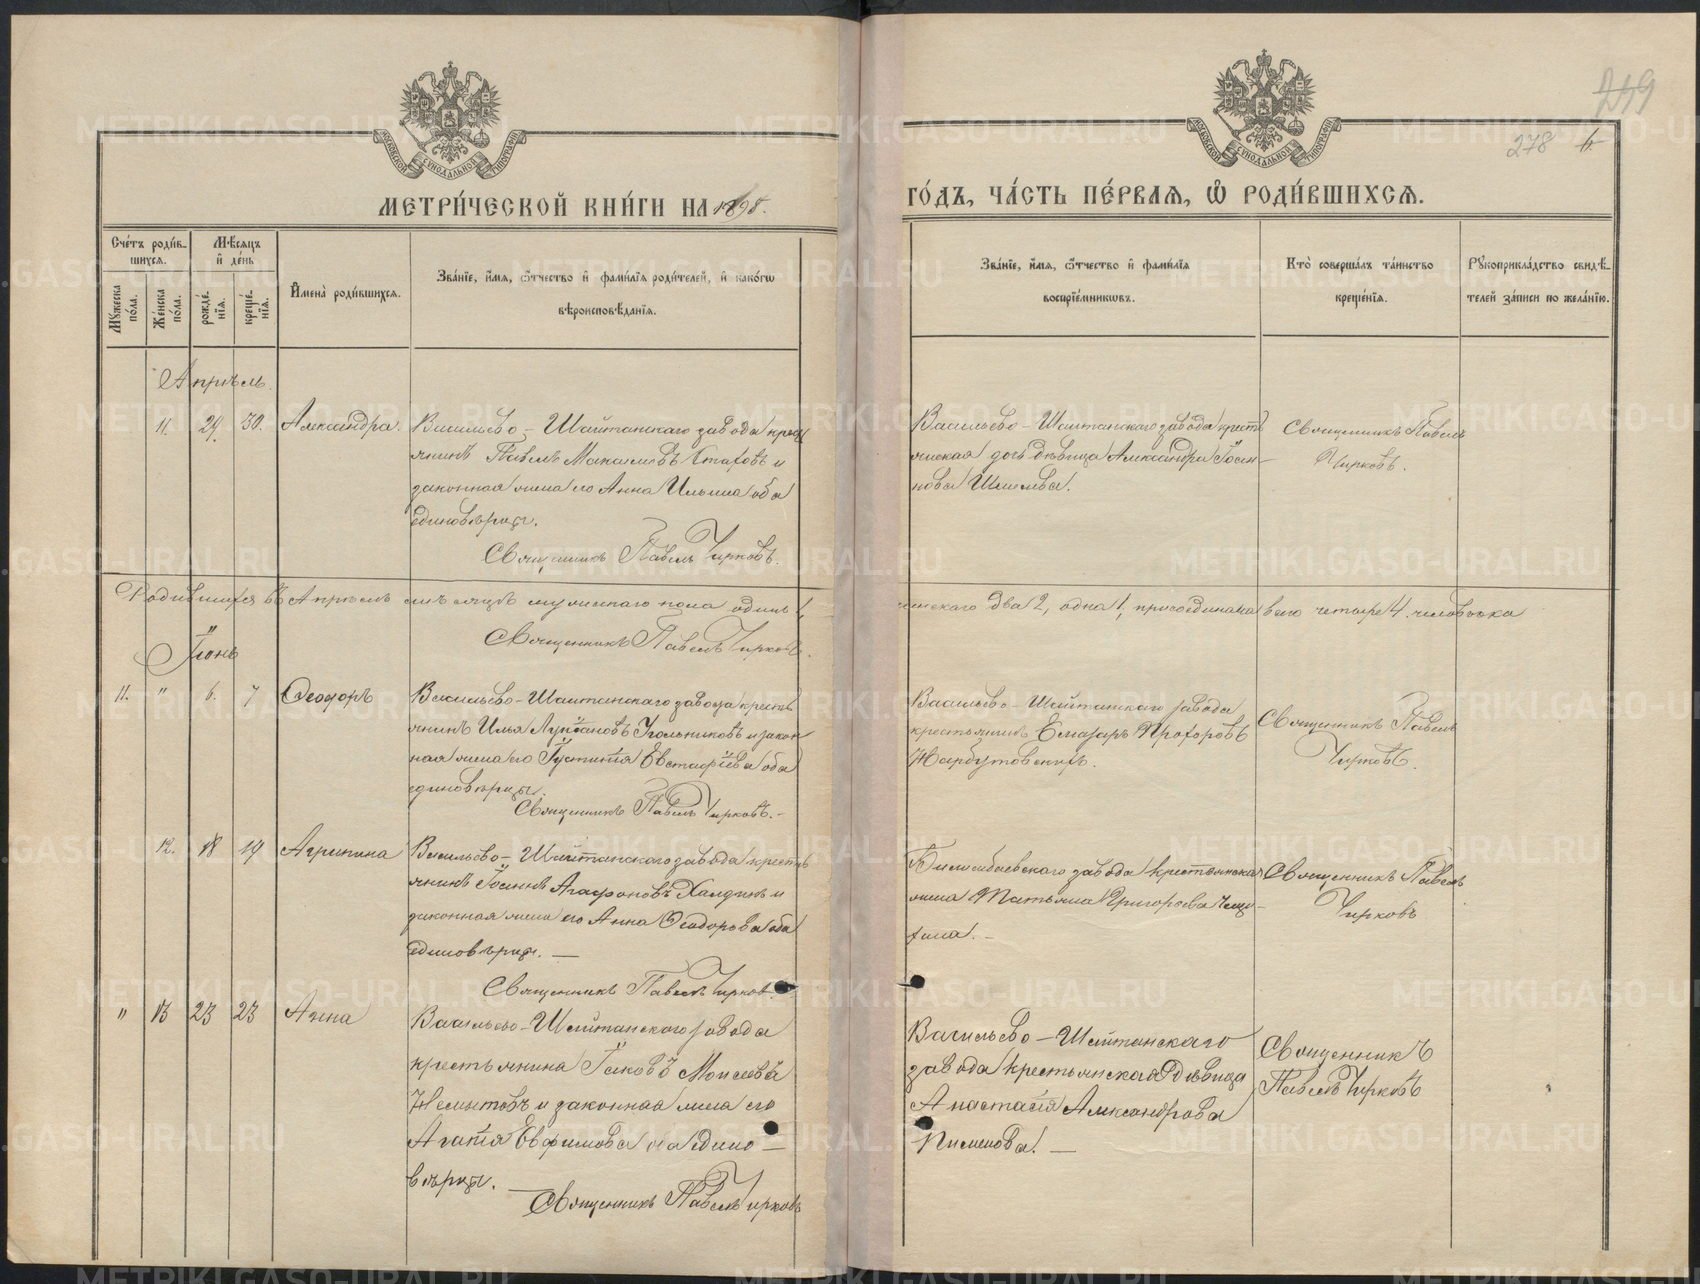 249
278
6
МОСКОВСКОЙ СѴНОДАЛЬНОЙ ТИПОГРАФІИ
МОСКОВСКОЙ СѴНОДАЛЬНОЙ ТИПОГРАФІИ
МЕТРИ́ЧЕСКОЙ КНИ́ГИ НА 1898.
ГО́ДЪ, ЧА́СТЬ ПЕ́РВАЯ, Ѡ҆ РОДИ́ВШИХСЯ.
Сче́тъ роди́в-
шихся.
Мꙋжеска по́ла.
Же́нска по́ла.
Мѣ́сяцъ
и҆ де́нь
рожде́-
нїя.
креще́-
нїя.
И҆мена̀ роди́вшихся.
Зва́нїе, и҆́мя, ѻ҆́тчество и҆ фами́лїя роди́телей, и҆ како́гѡ
вѣроисповѣ́данїя.
Зва́нїе, и҆́мя, ѻ҆́тчество и҆ фами́лїя
воспрїе́мниковъ.
Кто̀ соверша́лъ та́инство
креще́нїя.
Рꙋкоприкла́дство свидѣ́-
телей за́писи по жела́нїю.
Апрѣль.
11. 24. 30. Александра.
Васильево-Шайтанскаго завода крест
янинъ Павелъ Максимовъ и
законная жена его Анна Ильина оба
единовѣрцы.
Священникъ Павелъ Чирковъ.
Васильево-Шайтанскаго завода крестъ
янская дочь дѣвица Александра Іоан-
нова
Священникъ Павелъ
Чирковъ.
Родившихся въ Апрѣлѣ мѣсяцѣ мужескаго пола одинъ 1,
женскаго два 2, одна 1, присоединена всего четыре 4 человѣка
Священникъ Павелъ Чирковъ.
Іюнь
11. " 6. 7 Ѳеодоръ
Васильево-Шайтанскаго завода кресть
янинъ Илья Лукіановъ Угольниковъ и закон
ная жена его Іустинія Евстафіева оба
единовѣрцы.
Священникъ Павелъ Чирковъ.-
Васильево-Шайтанскаго завода
крестьянинъ Елиазаръ Прохоровъ
Нарбутовскихъ.
Священникъ Павелъ
Чирковъ.
12. 18 19 Агрипина
Васильево-Шайтанскаго завода кресть
янинъ Іоаннъ Агафоновъ Халдинъ и
законная жена его Анна Ѳеодорова оба
единовѣрцы. —
Священникъ Павелъ Чирков.
Билимбаевскаго завода крестьянская
жена Татьяна Григорьева
Священникъ Павелъ
Чирковъ
" 13 23 23 Анна
Васильево-Шайтанскаго завода
крестьянина Іаковъ Моисеевъ
и законная жена его
Агафія Евфимова оба едино-
вѣрцы. —
Священникъ Павелъ Чирковъ
Васильево-Шайтанскаго
завода крестьянская дѣвица
Анастасія Александрова
Пименова. —
Священникъ
Павелъ Чирковъ
METRIKI.GASO-URAL.RU